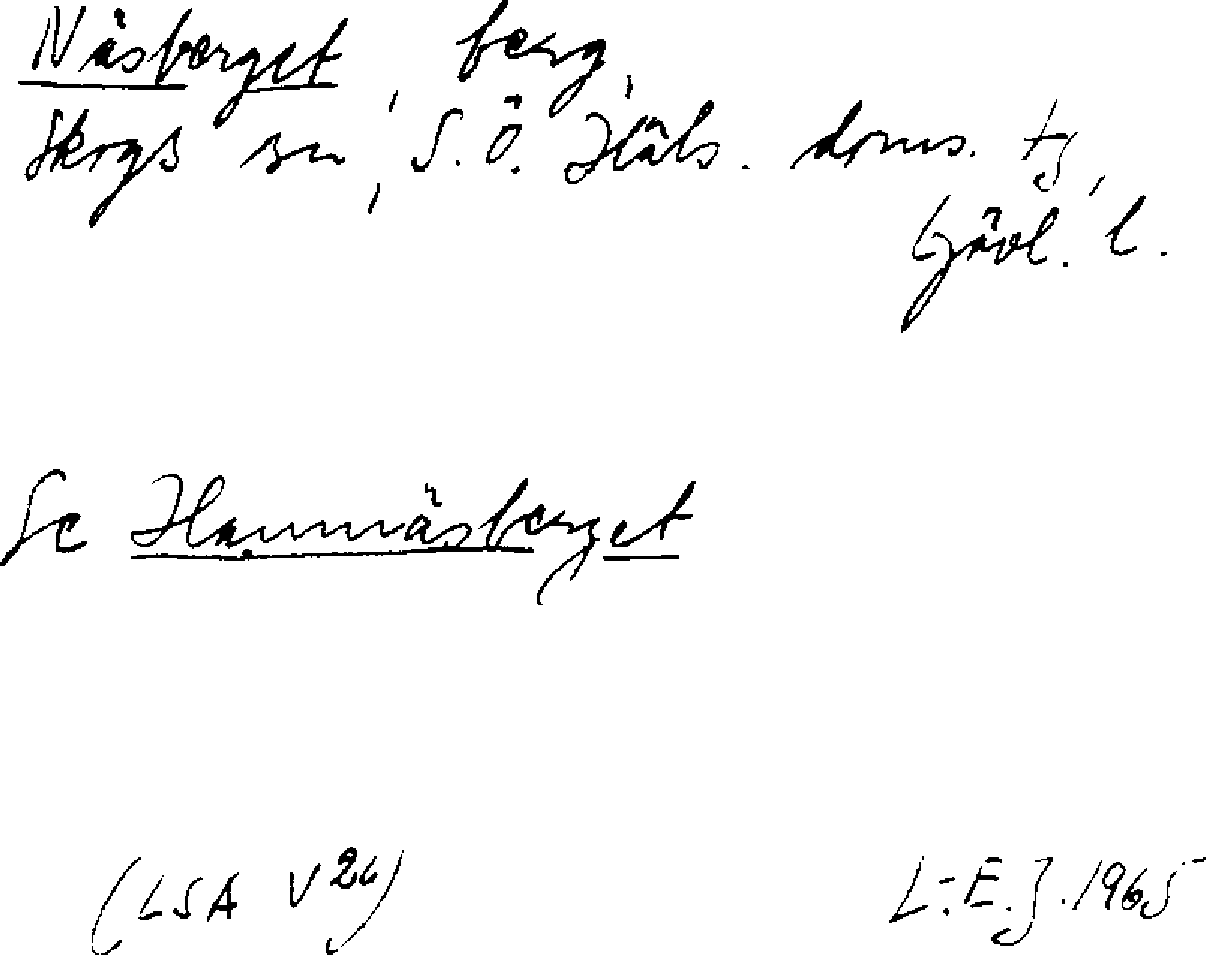 Näsberget, berg,
Skogs sn, S.Ö. Häls. doms. tg,
Gävl. l.
Se Hamnäsberget
(LSA V 26)
L-E.J. 1965